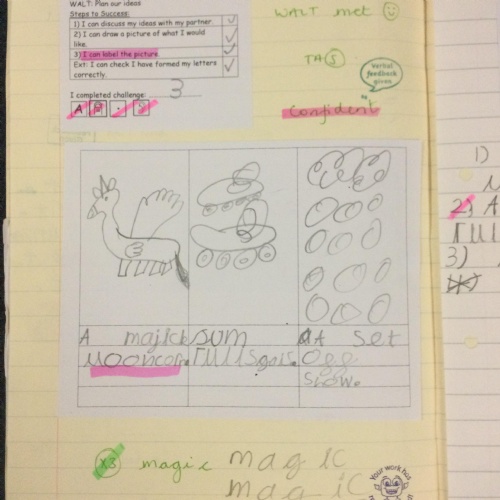 WALT: Plan our ideas
Steps to Success:
1) I can discuss my ideas with my partner.
2) I can draw a picture of what I would
like.
3) I can label the picture.
Ext: I can check I have formed my letters
correctly.
I completed challenge: 3
A
WALT met
TA S
Verbal
feedback
given
Confident
A majick
Moonco
sum
A Set
Ogg
Snow.
x3 magic magic
magic
Your work has
1)
2) A
3)